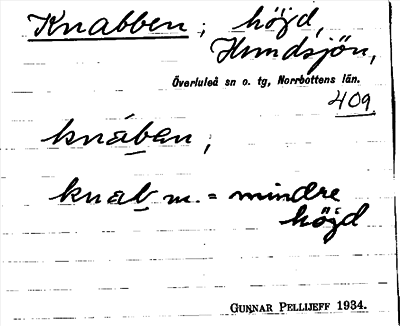 Knabben; höjd,
Hundsjön,
Överluleå sn o. tg, Norrbottens län.
409
knáben;
knab m. = mindre
höjd
GUNNAR PELLIJEFF 1934.